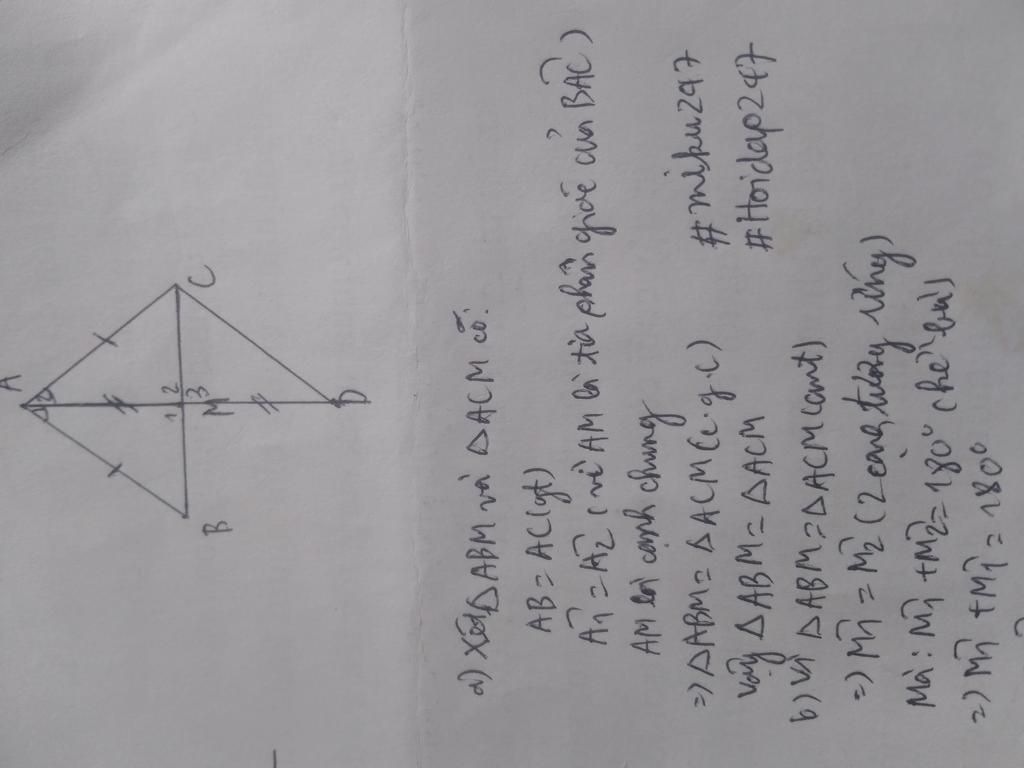 A
B
C
D
M
1 2
3
a) Xét ΔABM và ΔACM có:
AB = AC (gt)
A1 = A2 (vì AM là tia phân giác của BAC)
AM là cạnh chung
=> ΔABM = ΔACM (c.g.c)
vậy ΔABM = ΔACM
b) vì ΔABM = ΔACM (cmt)
=> M1 = M2 (2 cạng tương ứng)
Mà: M1 + M2 = 180° (kề bù)
=> M1 + M1 = 180°
#miku247
#Hoidap247